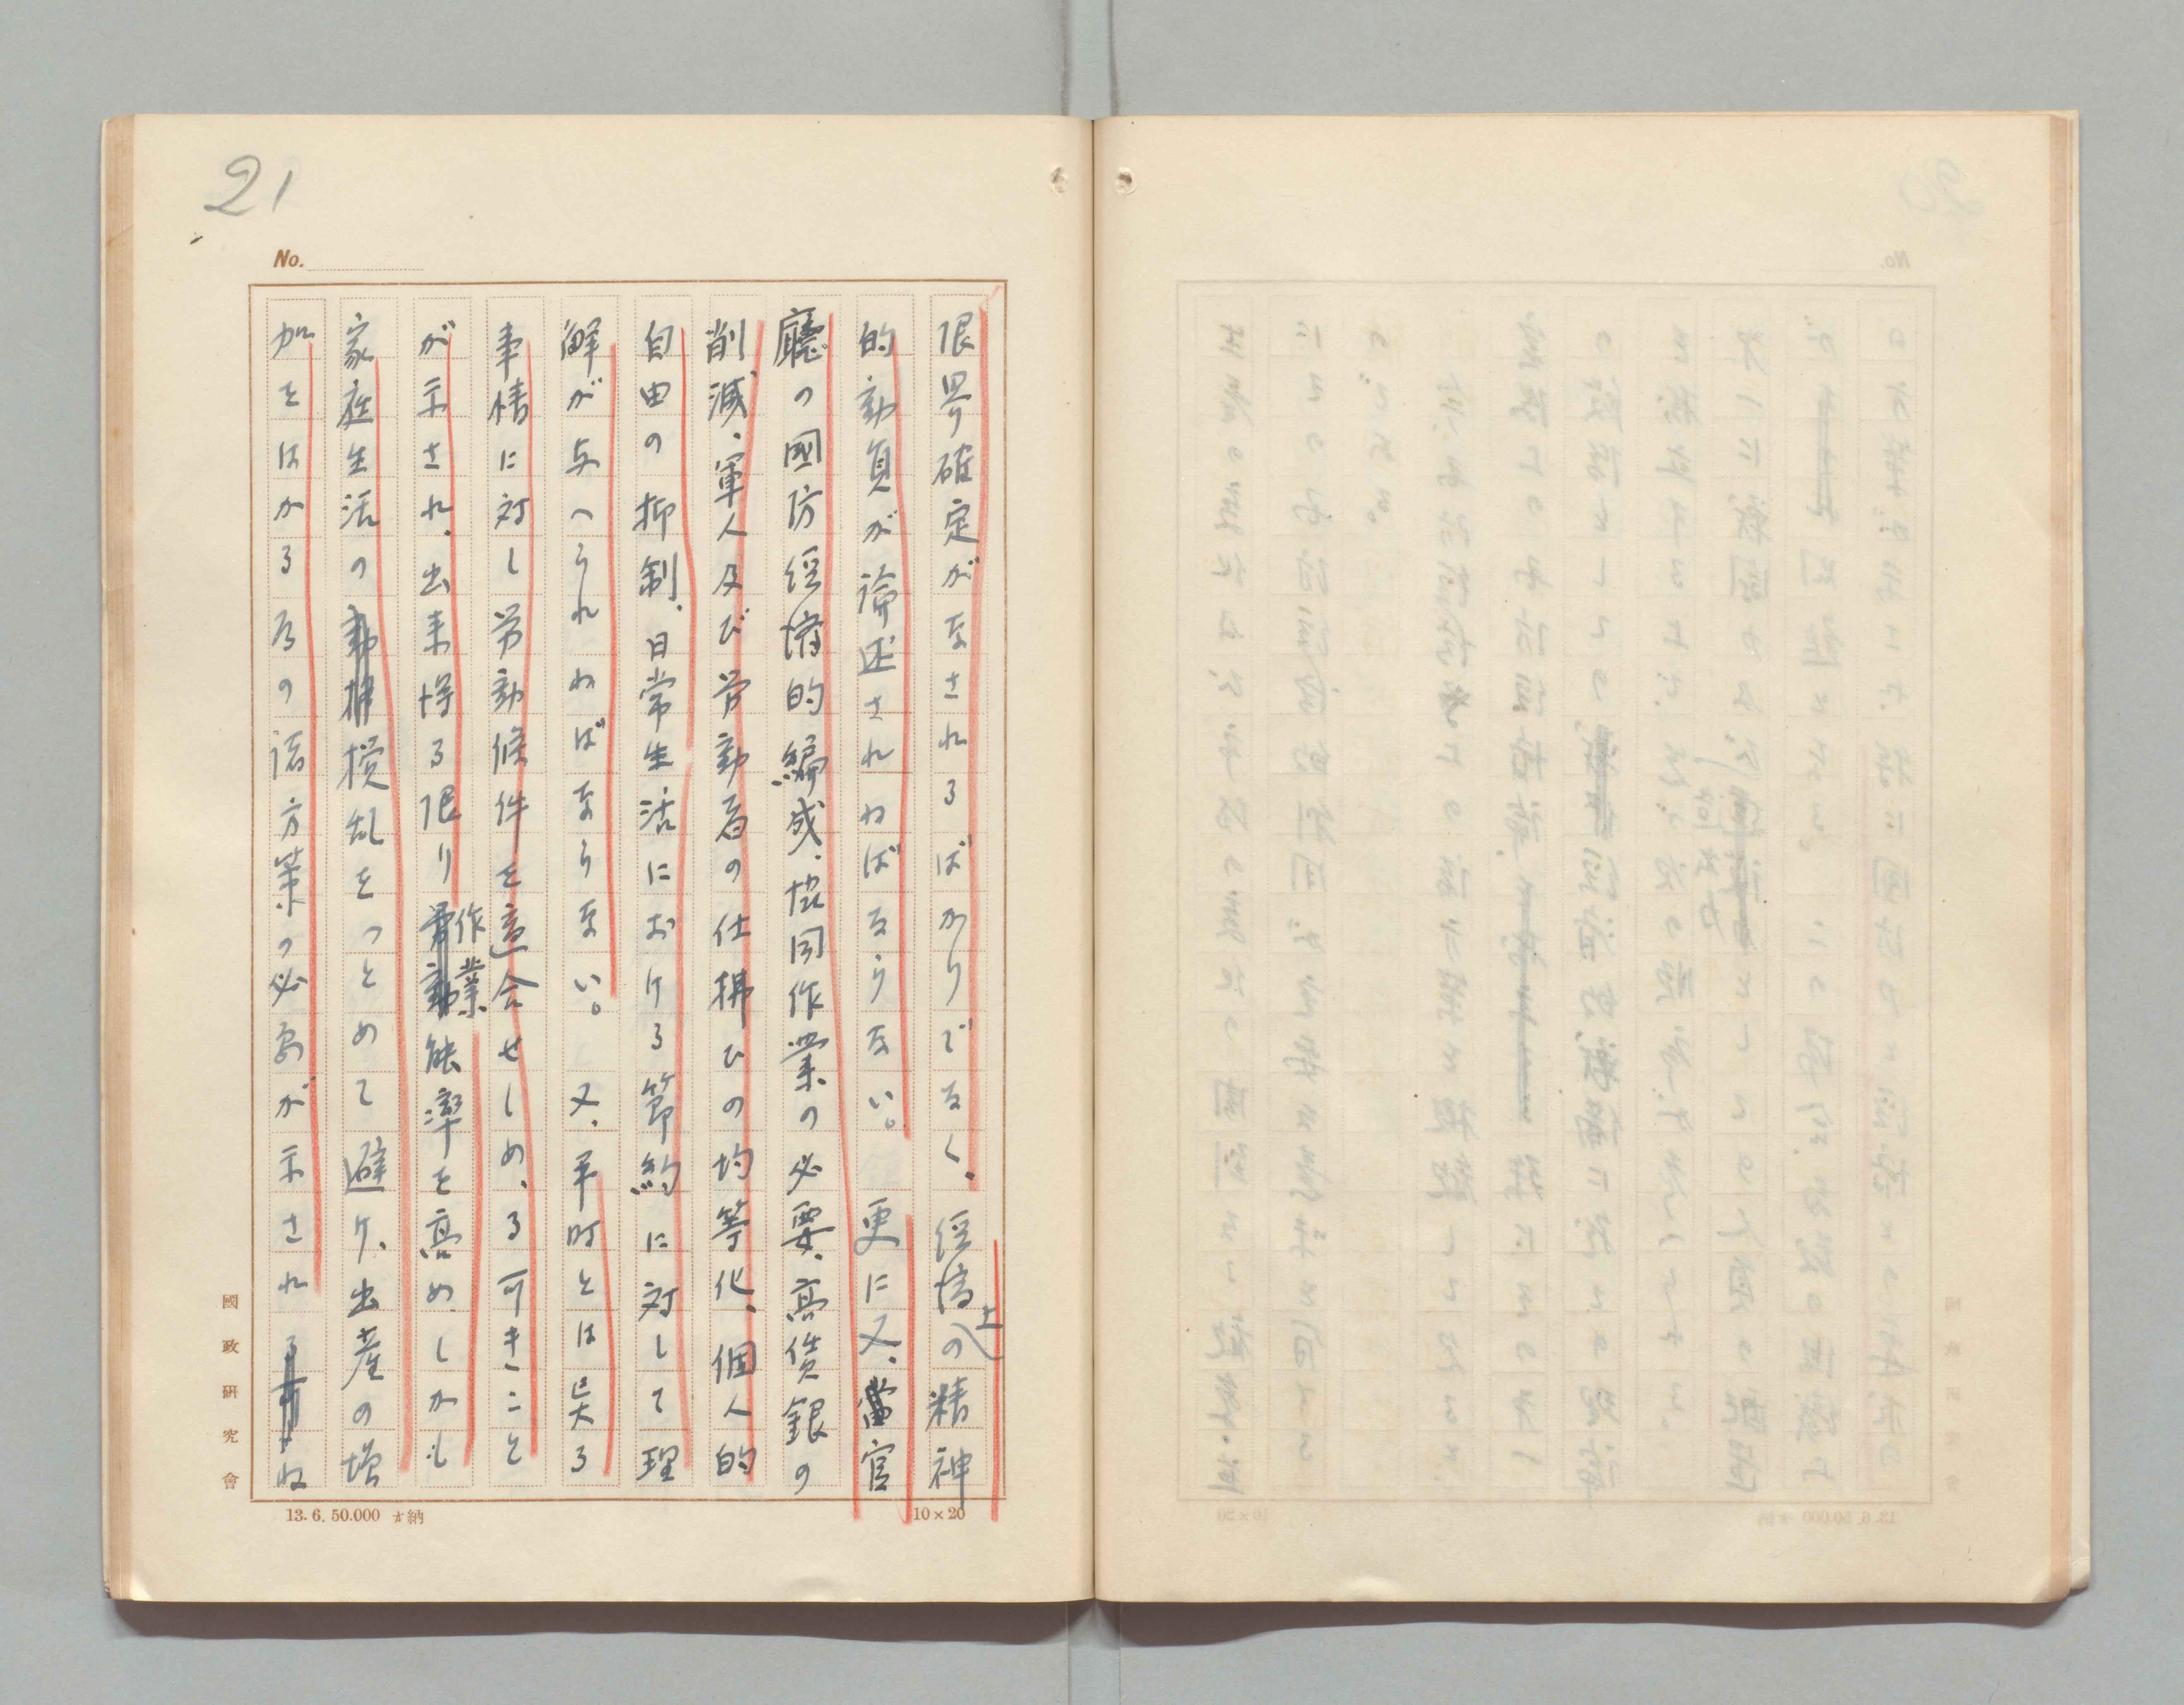 21
No.
限界確定がなされるばかりでなく、経済上の精神
的動員が論述されねばならない。更に又、當官
廳の國防経済的編成、協同作業の必要、高賃銀の
削減、軍人及び労働者の仕拂ひの均等化、個人的
自由の抑制、日常生活におけるる節約に対して理
解が与へられねばならない。又、平時とは異る
事情に対し労働條件を適合せしめ、る可きこと
が示され、出来得る限り作業能率を高めしかも
家庭生活の擾乱をつとめて避け、出産の増
加をはかる為の諸方策の必要が示されね
國政研究會
13. 6. 50.000 納
10×20